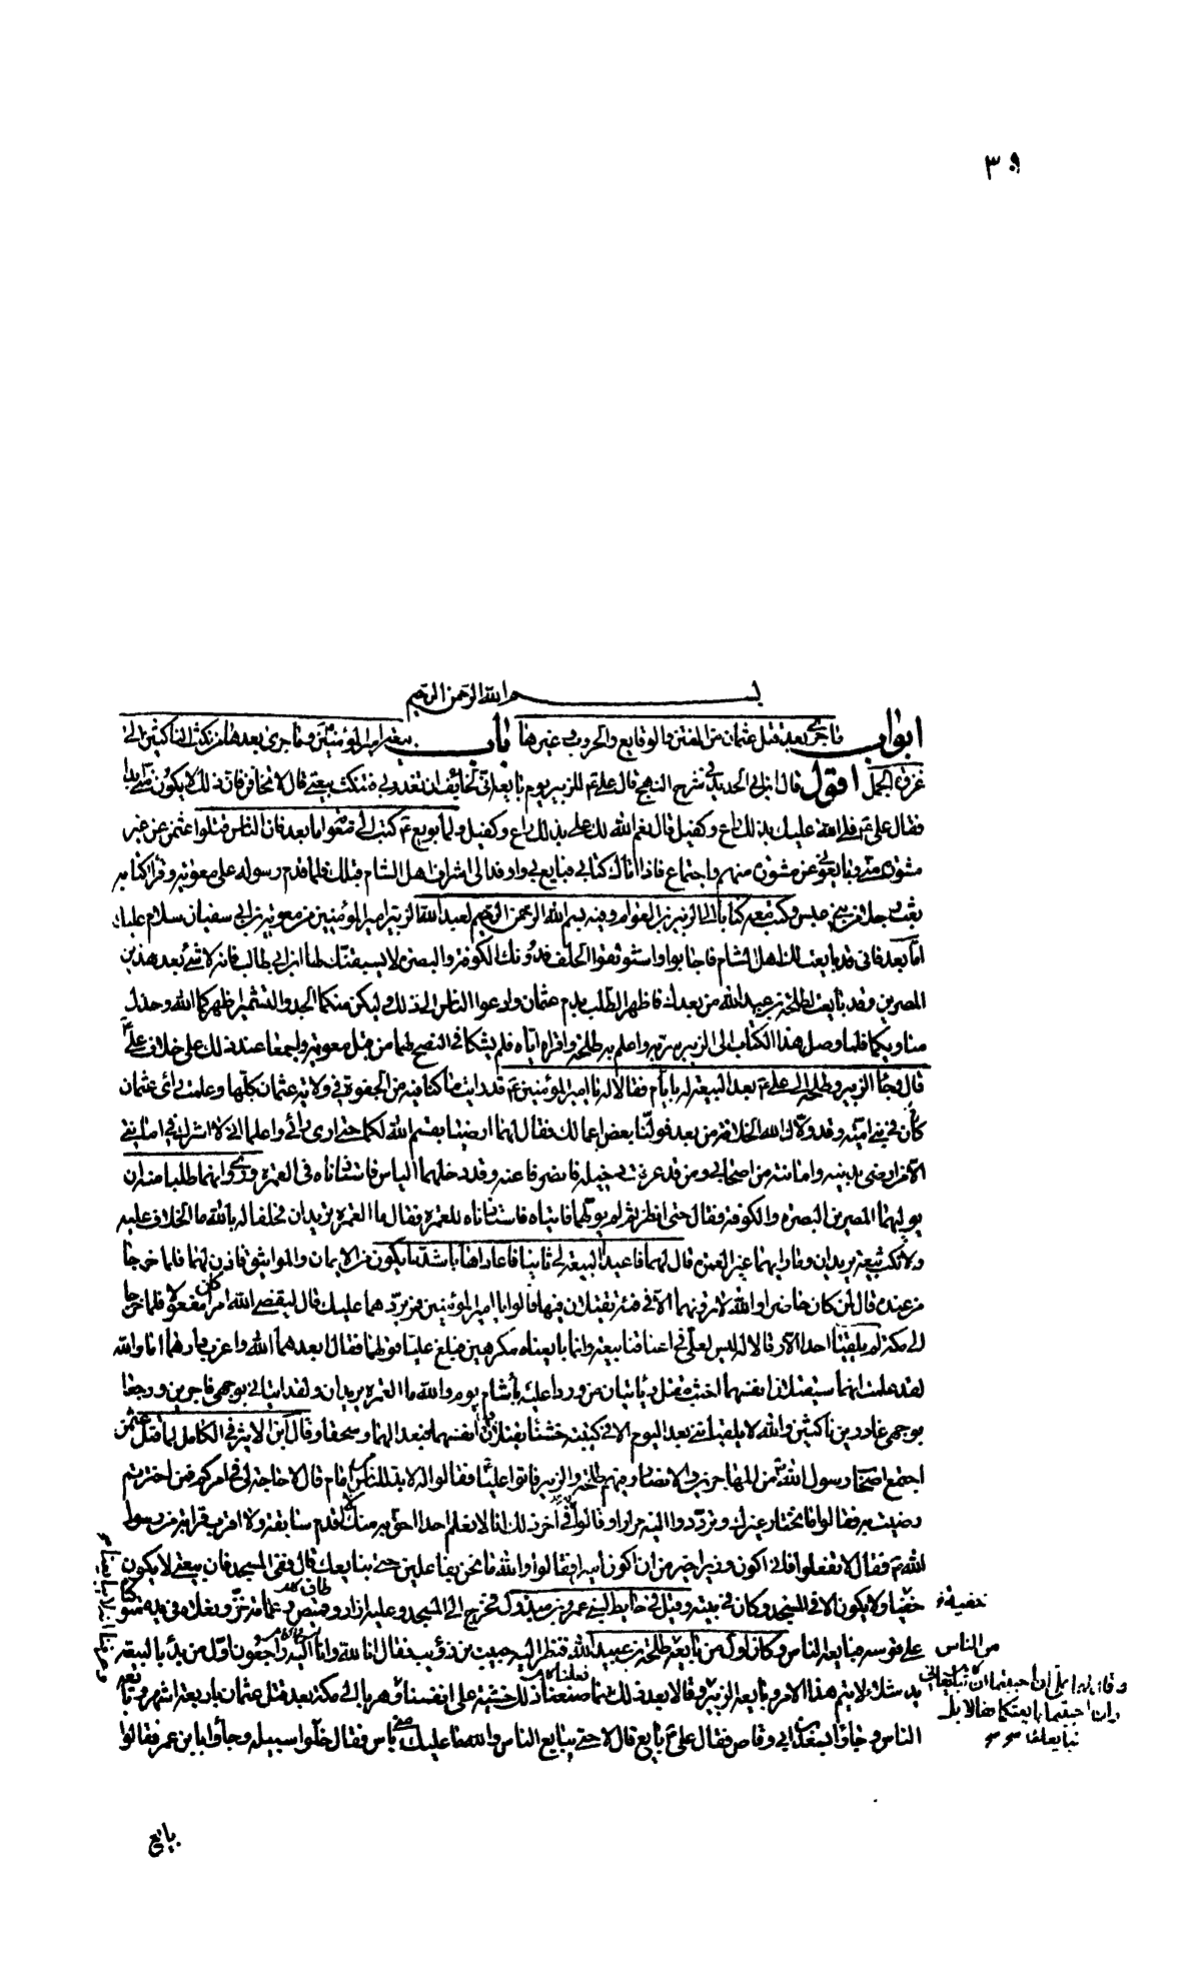 بسم الله الرحمن الرحيم
ابواب ما جرى بعد قتل عثمان من الفتن والوقايع والحروب وغيرها باب بيعة امير المؤمنين وما جرى بعدها من نكث الناكثين الى
غزوة الجمل اقول قال ابن ابي الحديد في شرح النهج قال علي ع للزبير يوم بايعه اني لخايف ان تغدر بي وتنكث بيعتي قال لا تخافن فان ذلك لا يكون مني ابدا
فقال علي ع فلي الله عليك بذلك راع وكفيل قال نعم الله لك علي بذلك راع وكفيل ولما بويع ع كتب الى معوية اما بعد فان الناس قتلوا عثمن عن غير
مشورة مني وبايعوني عن مشورة منهم واجتماع فاذا اتاك كتابي فبايع لي واوفد الي اشراف اهل الشام قبلك فلما قدم رسوله على معوية وقرا كتابه
بعث رجلا من بني عبس وكتب معه كتابا الى الزبير بن العوام وفيه بسم الله الرحمن الرحيم لعبد الله الزبير امير المؤمنين من معوية بن ابي سفيان سلام عليك
اما بعد فاني قد بايعت لك اهل الشام فاجابوا واستوثقوا الحلف فدونك الكوفة والبصرة لا يسبقنك لها ابن ابي طالب فانه لا شئ بعد هذين
المصرين وقد بايعت لطلحة بن عبيد الله من بعدك فاظهرا الطلب بدم عثمان وادعوا الناس الى ذلك وليكن منكما الجد والتشمير اظهركما الله وخذل
مناويكما فلما وصل هذا الكتاب الى الزبير سر به واعلم به طلحة واقراه اياه فلم يشكا في النصح لهما من قبل معوية واجمعا عند ذلك على خلاف علي
قال وجاء الزبير وطلحة الى علي ع بعد البيعة له بايام فقالا له يا امير المؤمنين ع قد رايت ما كنا فيه من الجفوة في ولاية عثمان كلها وعلمت راى عثمان
كان في بني امية وقد ولاك الله الخلافة من بعده فولنا بعض اعمالك فقال لهما ارضيا بقسم الله لكما حتى ارى رائي واعلما اني لا اشرك في امانتي
الا من ارضى بدينه وامانته من اصحابي ومن قد عرفت دخيله فانصرفا عنه وقد دخلهما الياس فاستاذناه في العمرة وروى انهما طلبا منه ان
يوليهما المصرين البصرة والكوفة فقال حتى انظر ثم لم يولهما فاتياه فاستاذناه للعمرة فقال ما العمرة تريدان فحلفا له بالله ما الخلاف عليه
ولا نكث بيعته يريدان وما رايهما غير العمرة قال لهما فاعيدا البيعة لي ثانيا فاعاداها باشد ما يكون من الايمان والمواثيق فاذن لهما فلما خرجا
من عنده قال لمن كان حاضرا والله لا ترونهما الا في فتنة يقتتلان فيها قالوا يا امير المؤمنين فمر بردهما عليك قال ليقضي الله امرا كان مفعولا فلما خرجا
الى مكة لم يلقيا احدا الا وقالا له ليس لعلي في اعناقنا بيعة وانما بايعناه مكرهين فبلغ عليا قولهما فقال ابعدهما الله واغرب دارهما اما والله
لقد علمت انهما سيقتلان انفسهما اخبث مقتل وياتيان من وردا عليه باشام يوم والله ما العمرة يريدان ولقد اتياني بوجهي فاجرين ورجعا
بوجهي غادرين ناكثين والله لا يلقيانني بعد اليوم الا في كتيبة خشناء يقتلان فيها انفسهما فبعدا لهما وسحقا وقال ابن الاثير في الكامل لما قتل عثمن
اجتمع اصحاب رسول الله من المهاجرين والانصار وفيهم طلحة والزبير فاتوا عليا فقالوا له لا بد للناس من امام قال لا حاجة لي في امركم فمن اخترتم
رضيت به فقالوا ما نختار غيرك وترددوا اليه مرارا وقالوا في اخر ذلك انا لا نعلم احدا احق به منك لا اقدم سابقة ولا اقرب قرابة من رسول
الله ص فقال لا تفعلوا فاني اكون وزيرا خير من ان اكون اميرا فقالوا والله ما نحن بفاعلين حتى نبايعك قال ففي المسجد فان بيعتي لا يكون
خفيا ولا يكون الا في المسجد وكان في بيته وقيل في حايط لبني عمرو بن مبذول فخرج الى المسجد وعليه ازار وقميص وعمامة خز ونعلاه في يده متوكئا
على قوسه فبايعه الناس وكان اول من بايعه طلحة بن عبيد الله فنظر اليه حبيب بن ذؤيب فقال انا لله وانا اليه راجعون اول من بدا بالبيعة
يد شلاء لا يتم هذا الامر وبايعه الزبير وقالا بعد ذلك انما صنعنا ذلك خشية على انفسنا وهربا الى مكة بعد قتل عثمان باربعة اشهر وبايعه
الناس وجاؤا بسعد بن ابي وقاص فقال علي ع بايع قال لا حتى يبايع الناس والله ما عليك مني باس فقال خلوا سبيله وجاؤا بابن عمر فقالوا
خفية
من الناس
بايع